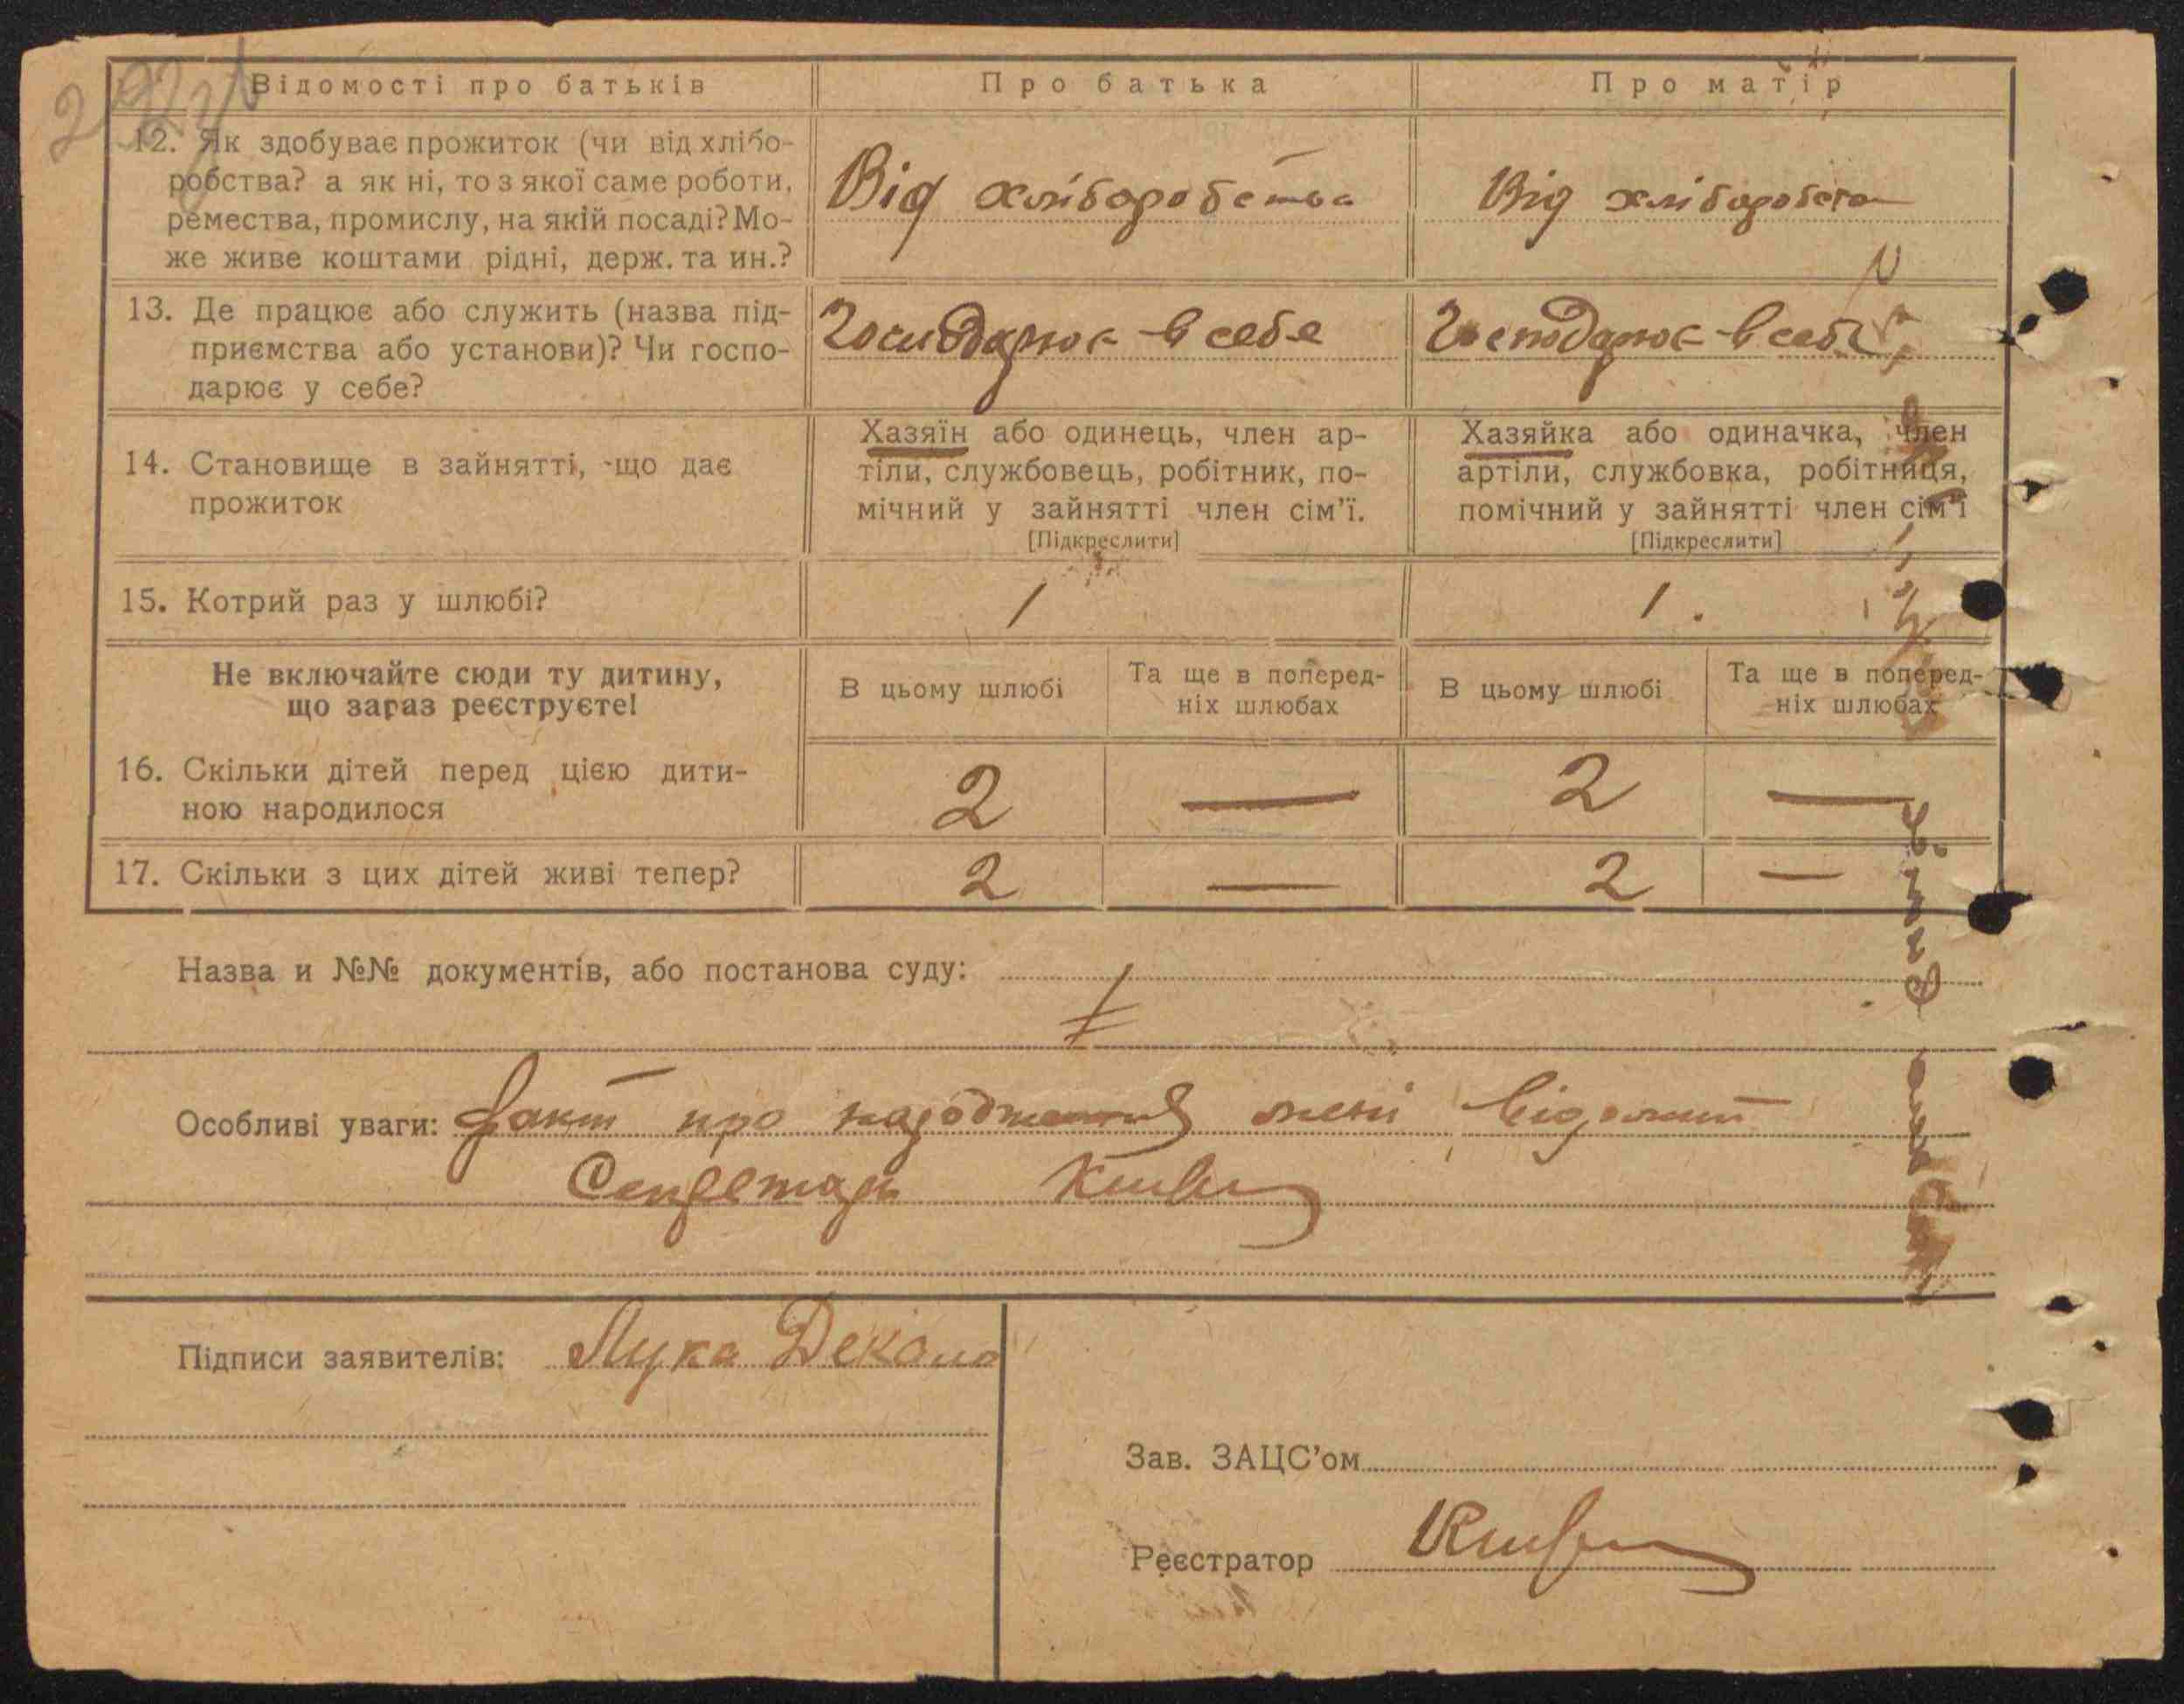 Відомості про батьків
Про батька
Про матір
12. Як здобуває прожиток (чи від хлібо-
робства? а як ні, то з якої саме роботи,
ремества, промислу, на якій посаді? Мо-
же живе коштами рідні, держ. та ин.?
Від хліборобства
Від хліборобства
13. Де працює або служить (назва під-
приємства або установи)? Чи госпо-
дарює у себе?
Господарює в себе
Господарює в себе
14. Становище в зайнятті, що дає
прожиток
Хазяїн або одинець, член ар-
тіли, службовець, робітник, по-
мічний у зайнятті член сім'ї.
[Підкреслити]
Хазяйка або одиначка, член
артіли, службовка, робітниця,
помічний у зайнятті член сім'ї
[Підкреслити]
15. Котрий раз у шлюбі?
1
1.
Не включайте сюди ту дитину,
що зараз реєструєте!
В цьому шлюбі
Та ще в поперед-
ніх шлюбах
В цьому шлюбі
Та ще в поперед-
ніх шлюбах
16. Скільки дітей перед цією дити-
ною народилося
2 — 2 —
17. Скільки з цих дітей живі тепер?
2 — 2 —
Назва и №№ документів, або постанова суду:
Особливі уваги: факт про народження мені відомий
Секретарь
Підписи заявителів: Лука
Зав. ЗАЦС'ом
Реєстратор